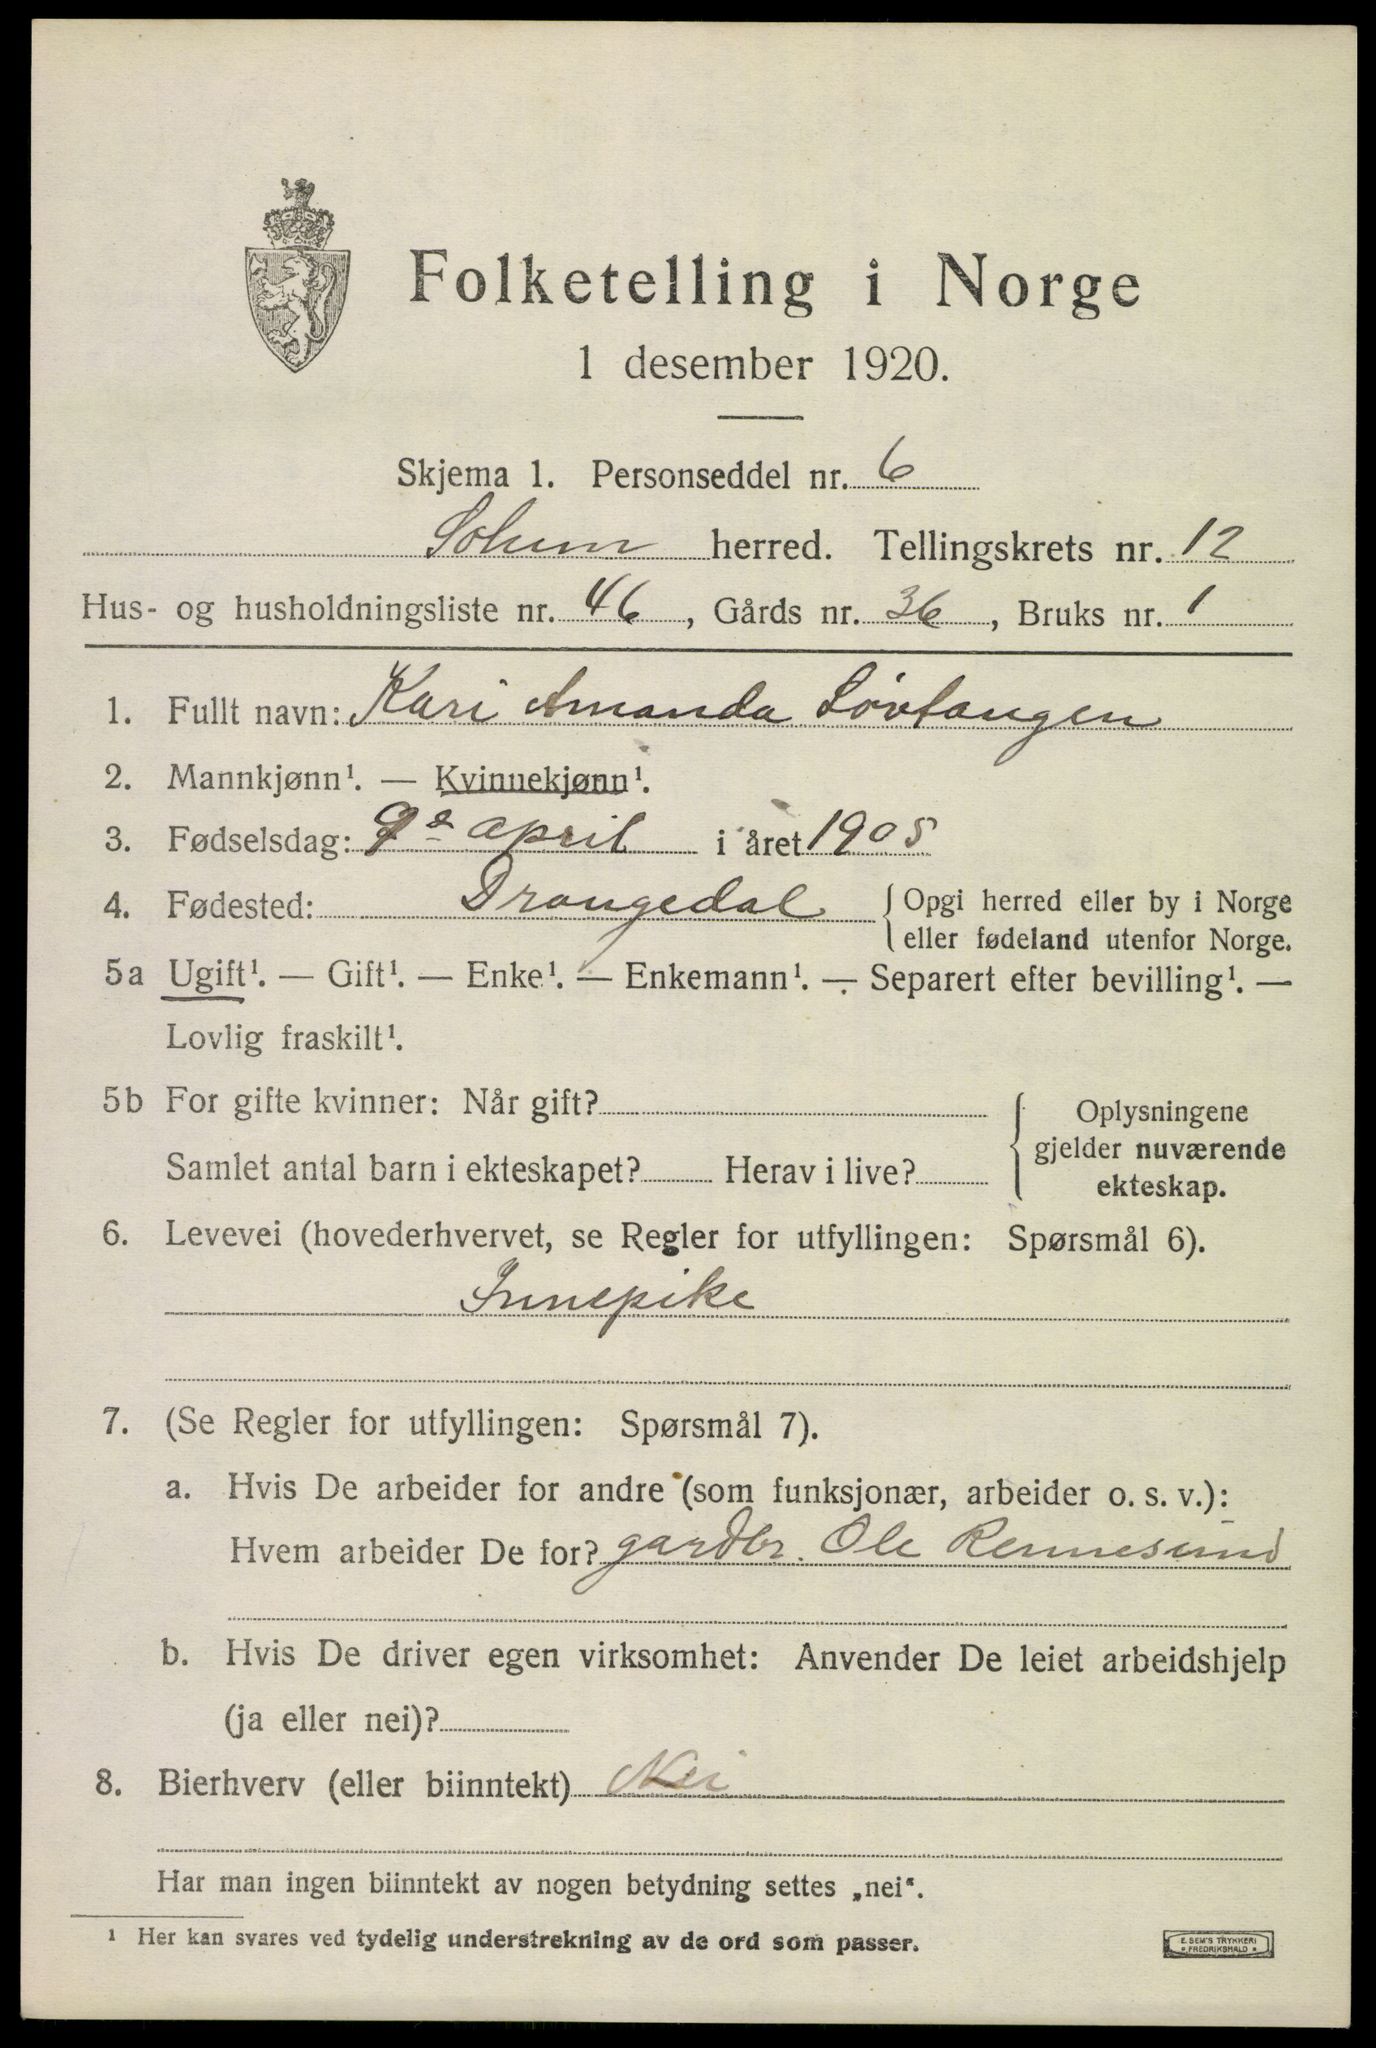 Folketelling i Norge
1 desember 1920.
Skjema 1. Personseddel nr. 6
Solum herred. Tellingskrets nr. 12
Hus- og husholdningsliste nr. 46, Gårds nr. 36, Bruks nr. 1
1. Fullt navn: Kari Amanda Løvtangen
2. Mannkjønn¹. — Kvinnekjønn¹.
3. Fødselsdag: 9de april i året 1905
4. Fødested: Drangedal { Opgi herred eller by i Norge
eller fødeland utenfor Norge.
5a Ugift¹. — Gift¹. — Enke¹. — Enkemann¹. — Separert efter bevilling¹. —
Lovlig fraskilt¹.
5b For gifte kvinner: Når gift?
Samlet antal barn i ekteskapet? Herav i live?
Oplysningene
gjelder nuværende
ekteskap.
6. Levevei (hovederhvervet, se Regler for utfyllingen: Spørsmål 6).
Innepike
7. (Se Regler for utfyllingen: Spørsmål 7).
a. Hvis De arbeider for andre (som funksjonær, arbeider o. s. v.):
Hvem arbeider De for? gardbr. Ole Rennesund
b. Hvis De driver egen virksomhet: Anvender De leiet arbeidshjelp
(ja eller nei)?
8. Bierhverv (eller biinntekt) Nei
Har man ingen biinntekt av nogen betydning settes „nei“.
¹ Her kan svares ved tydelig understrekning av de ord som passer.
E. SEM'S TRYKKERI
FREDRIKSHALD